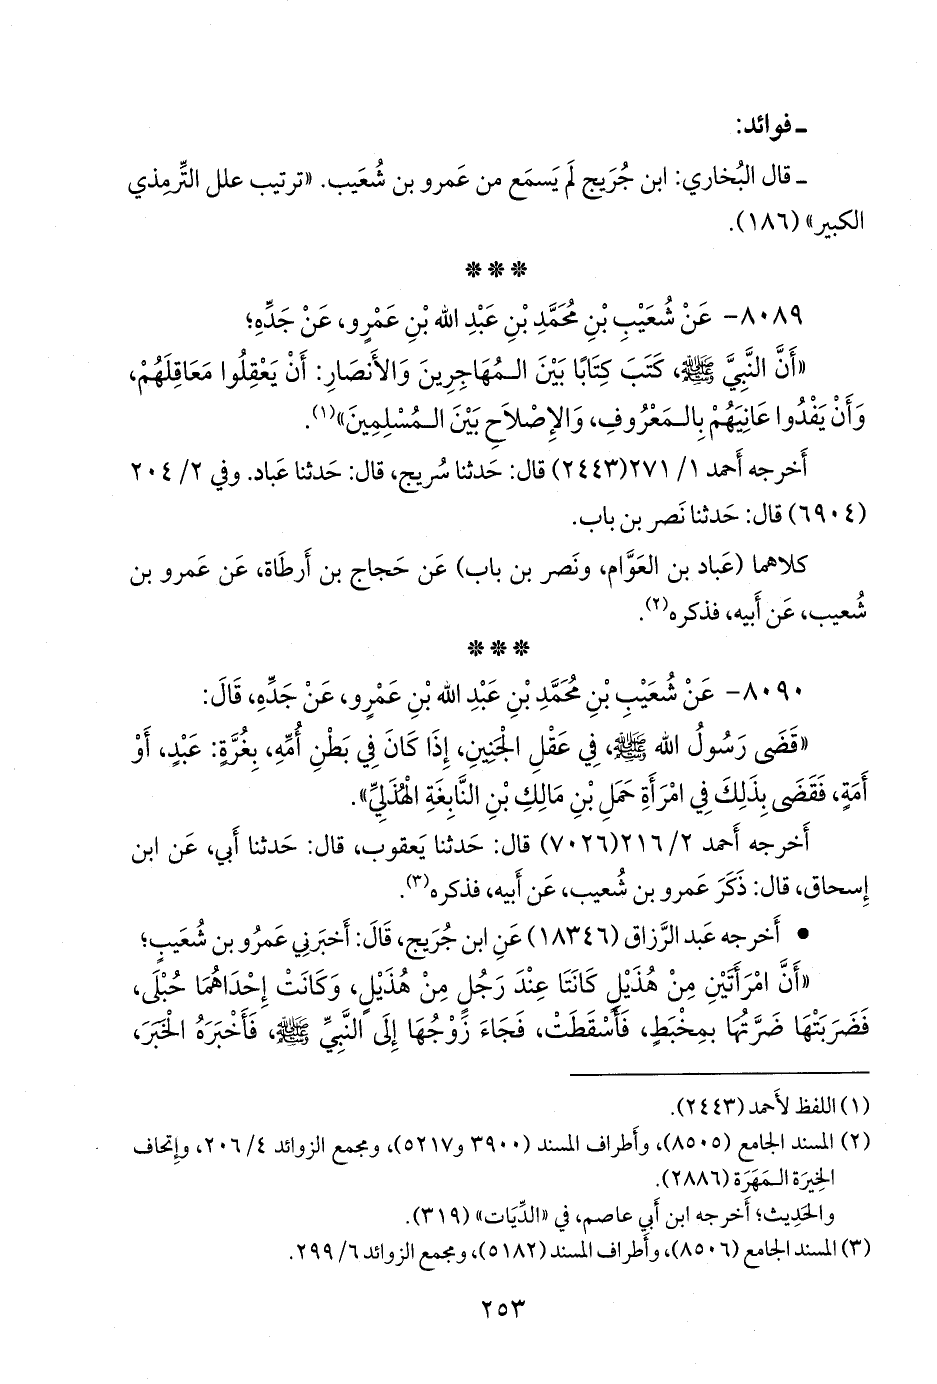 ـ فوائد:
ـ قال البُخاري: ابن جُرَيج لَم يَسمَع من عَمرو بن شُعَيب. «ترتيب علل التِّرمِذي
الكبير» (١٨٦).
* * *
٨٠٨٩- عَنْ شُعَيْبِ بْنِ مُحَمَّدِ بْنِ عَبْدِ الله بْنِ عَمْرٍو، عَنْ جَدِّهِ؛
«أَنَّ النَّبِيَّ ﷺ، كَتَبَ كِتَابًا بَيْنَ الـمُهَاجِرِينَ وَالأَنصَارِ: أَنْ يَعْقِلُوا مَعَاقِلَهُمْ،
وَأَنْ يَفْدُوا عَانِيَهُمْ بِالـمَعْرُوفِ، وَالإِصْلَاحِ بَيْنَ الـمُسْلِمِينَ»(١).
أَخرجه أَحمد ١/ ٢٧١(٢٤٤٣) قال: حَدثنا سُريج، قال: حَدثنا عَباد. وفي ٢/ ٢٠٤
(٦٩٠٤) قال: حَدثنا نَصر بن باب.
كلاهما (عَباد بن العَوَّام، ونَصر بن باب) عَن حَجاج بن أَرطَاة، عَن عَمرو بن
شُعيب، عَن أَبيه، فذكره(٢).
* * *
٨٠٩٠- عَنْ شُعَيْبِ بْنِ مُحَمَّدِ بْنِ عَبْدِ الله بْنِ عَمْرٍو، عَنْ جَدِّهِ، قَالَ:
«قَضَى رَسُولُ الله ﷺ، فِي عَقْلِ الجَنِينِ، إِذَا كَانَ فِي بَطْنِ أُمِّهِ، بِغُرَّةٍ: عَبْدٍ، أَوْ
أَمَةٍ، فَقَضَى بِذَلِكَ فِي امْرَأَةِ حَمَلِ بْنِ مَالِكِ بْنِ النَّابِغَةِ الهُذَلِيِّ».
أَخرجه أَحمد ٢/ ٢١٦(٧٠٢٦) قال: حَدثنا يَعقوب، قال: حَدثنا أَبي، عَن ابن
إِسحاق، قال: ذَكَرَ عَمرو بن شُعيب، عَن أَبيه، فذكره(٣).
• أَخرجه عَبد الرَّزاق (١٨٣٤٦) عَنِ ابن جُرَيج، قَالَ: أَخبَرني عَمرُو بن شُعَيبٍ؛
«أَنَّ امْرَأَتَيْنِ مِنْ هُذَيْلٍ كَانَتَا عِنْدَ رَجُلٍ مِنْ هُذَيْلٍ، وَكَانَتْ إِحْدَاهُمَا حُبْلَى،
فَضَرَبَتْهَا ضَرَّتُهَا بِمِخْبَطٍ، فَأَسْقَطَتْ، فَجَاءَ زَوْجُهَا إِلَى النَّبِيِّ ﷺ، فَأَخْبَرَهُ الخَبَرَ،
(١) اللفظ لأَحمد (٢٤٤٣).
(٢) المسند الجامع (٨٥٠٥)، وأَطراف المسند (٣٩٠٠ و٥٢١٧)، ومجمع الزوائد ٤/ ٢٠٦، وإِتحاف
الخِيرَة الـمَهَرَة (٢٨٨٦).
والحَدِيث؛ أَخرجه ابن أَبي عاصم، في «الدِّيَات» (٣١٩).
(٣) المسند الجامع (٨٥٠٦)، وأَطراف المسند (٥١٨٢)، ومجمع الزوائد ٦/ ٢٩٩.
٢٥٣